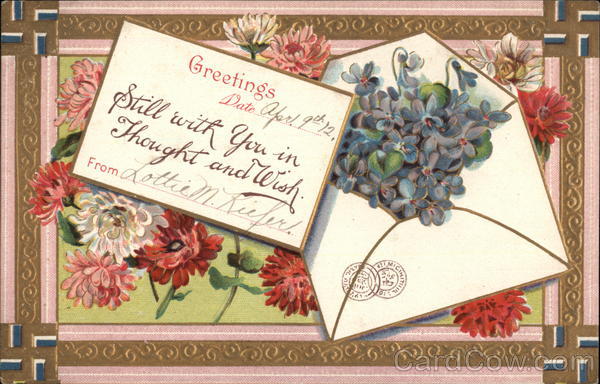 Greetings
Date Apr. 9th 12.
Still with You in
Thought and Wish.
From Lottie M. Kiefer.
CardCow.com